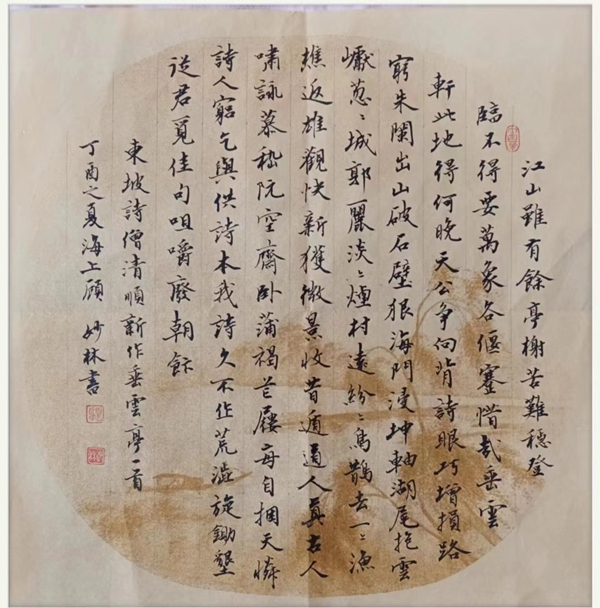 江山雖有餘亭榭苦難穩登
臨不得要萬象各偃蹇惜哉垂雲
軒此地得何晚天公争向背詩眼巧增損路
窮朱闌出山破石壁狠海門浸坤軸湖尾抱雲
巘葱〻城郭麗淡〻煙村遠紛〻烏鵲去一〻漁
樵返雄觀快新獲微景收昔遁道人真古人
嘯詠慕嵇阮空齋卧蒲褐芒屨每自捆天憐
詩人窮乞與供詩本我詩久不作荒澁旋鋤墾
從君覓佳句咀嚼廢朝飰
東坡詩僧清順新作垂雲亭一首
丁酉之夏海上顧 妙林書